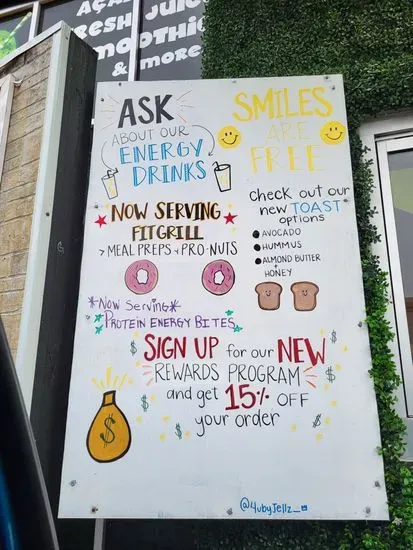 AÇAÍ
FRESH JUICE
SMOOTHIE
& more
ASK
ABOUT OUR
ENERGY
DRINKS
SMILES
ARE
FREE
NOW SERVING
FITGRILL
> MEAL PREPS + PRO-NUTS
*Now Serving*
PROTEIN ENERGY BITES
check out our
new TOAST
options
AVOCADO
HUMMUS
ALMOND BUTTER
+ HONEY
SIGN UP for our NEW
REWARDS PROGRAM
and get 15% OFF
your order
$